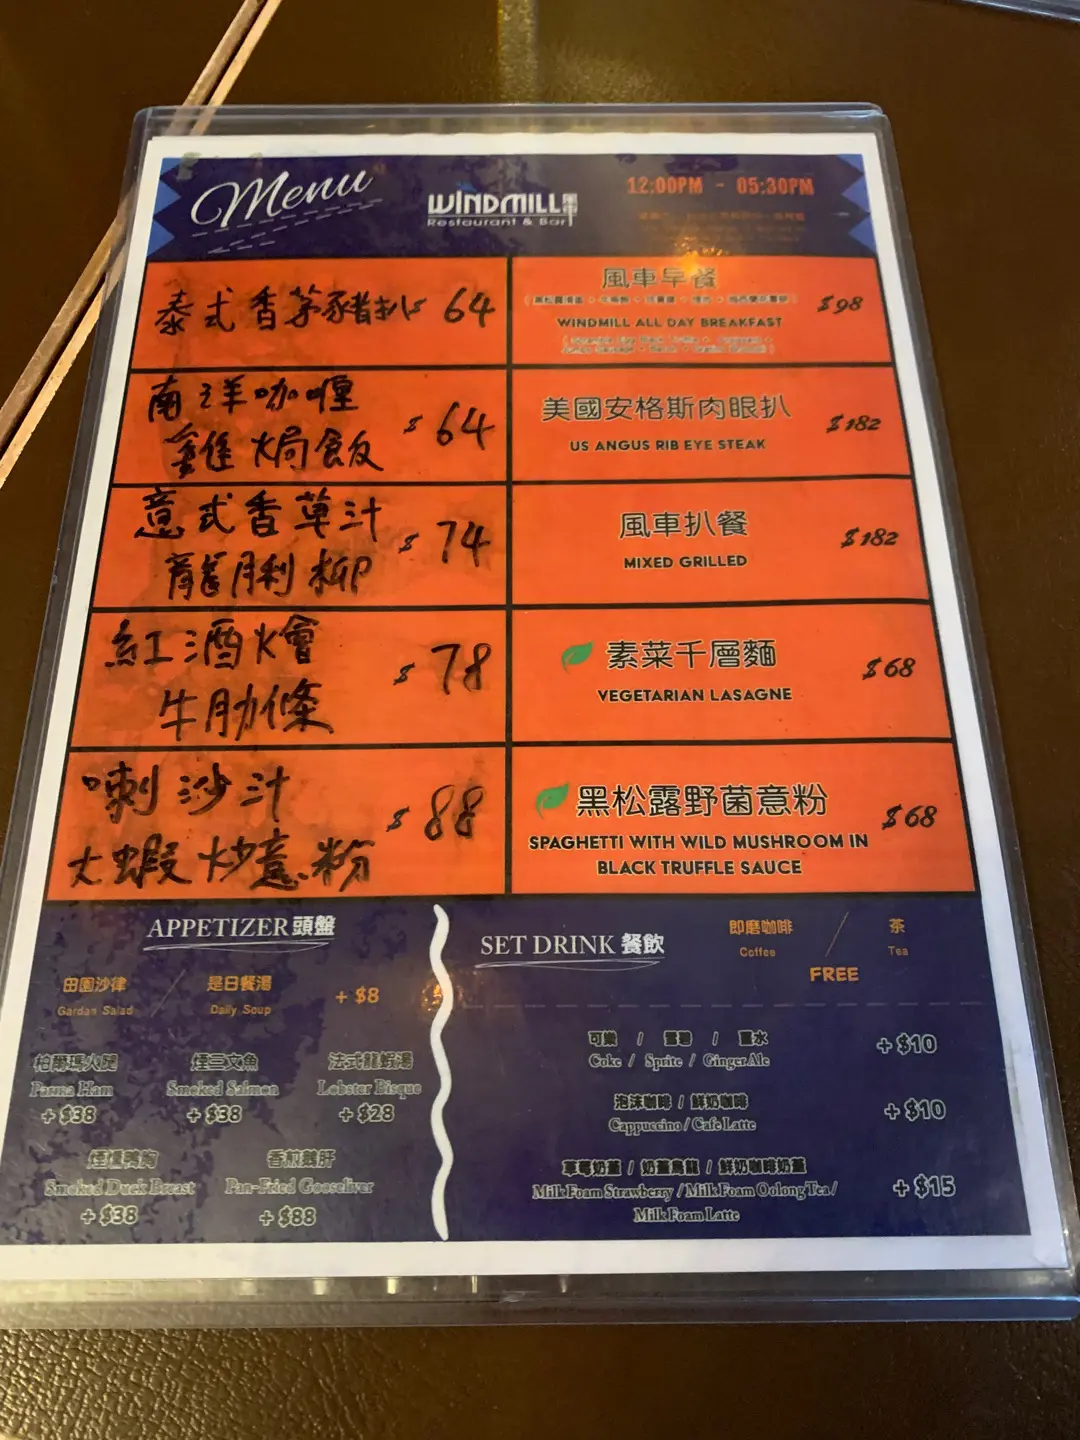 Menu
WINDMILL 風車
Restaurant & Bar
12:00PM - 05:30PM
泰式香茅豬扒 64
南洋咖喱
雞焗飯 $64
意式香草汁
龍脷柳 $74
紅酒燴
牛肋條 $78
喇沙汁
大蝦炒意粉 $88
風車早餐
$98
WINDMILL ALL DAY BREAKFAST
美國安格斯肉眼扒
$182
US ANGUS RIB EYE STEAK
風車扒餐
$182
MIXED GRILLED
素菜千層麵
$68
VEGETARIAN LASAGNE
黑松露野菌意粉
$68
SPAGHETTI WITH WILD MUSHROOM IN
BLACK TRUFFLE SAUCE
APPETIZER 頭盤
田園沙律 / 是日餐湯 + $8
Gardan Salad Daily Soup
柏爾瑪火腿 煙三文魚 法式龍蝦湯
Parma Ham Smoked Salmon Lobster Bisque
+ $38 + $38 + $28
煙燻鴨胸 香煎鵝肝
Smoked Duck Breast Pan-Fried Gooseliver
+ $38 + $88
SET DRINK 餐飲
即磨咖啡 / 茶
Coffee Tea
FREE
可樂 / 雪碧 / 薑水
Coke / Sprite / Ginger Ale
+ $10
泡沫咖啡 / 鮮奶咖啡
Cappuccino / Cafe Latte
+ $10
草莓奶蓋 / 奶蓋烏龍 / 鮮奶咖啡奶蓋
Milk Foam Strawberry / Milk Foam Oolong Tea /
Milk Foam Latte
+ $15